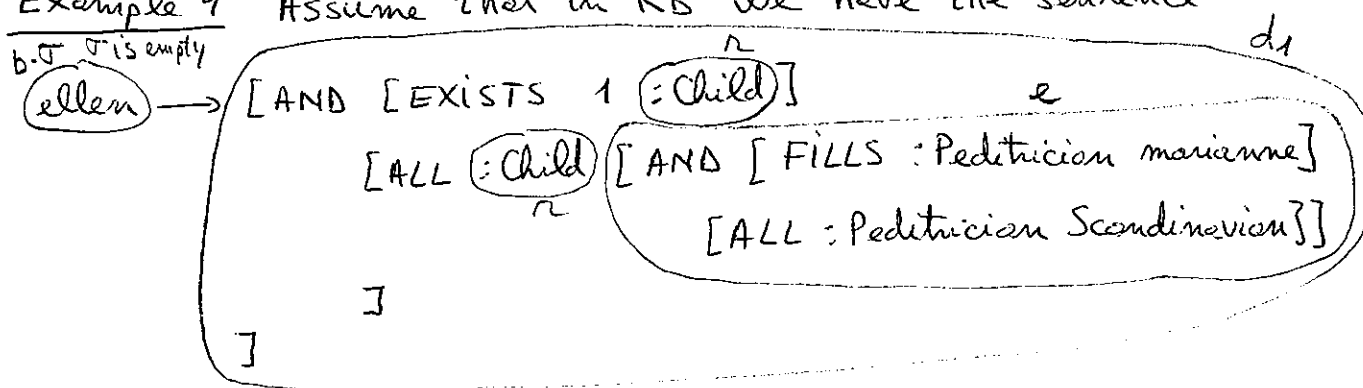 Example 9 Assume that in KB we have the sentence
b.σ σ is empty r d1
ellen → [AND [EXISTS 1 :Child] e
[ALL :Child [AND [FILLS :Peditricion marianne]
r [ALL :Peditricion Scandinavian]]
]
]